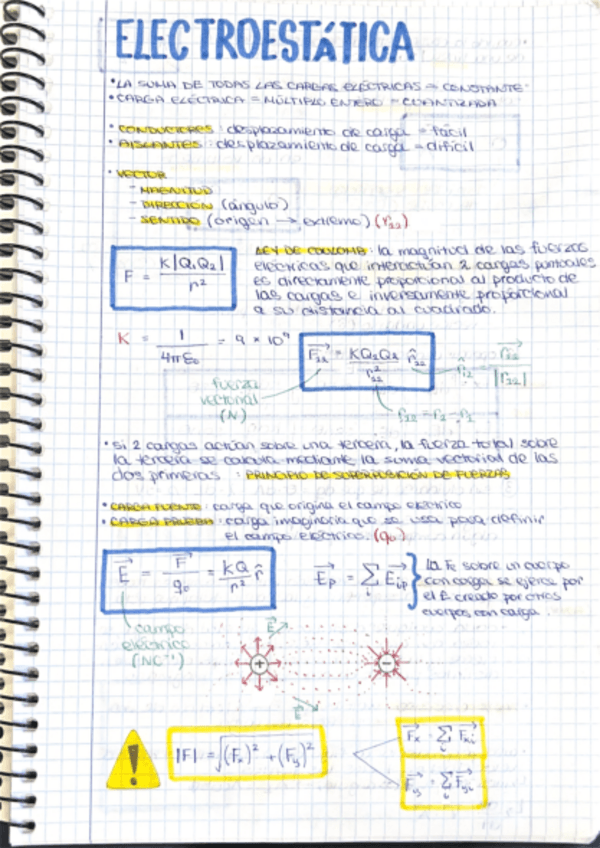 ELECTROESTÁTICA
• LA SUMA DE TODAS LAS CARGAS ELÉCTRICAS = CONSTANTE
• CARGA ELÉCTRICA = MÚLTIPLO ENTERO - CUANTIZADA
• CONDUCTORES : desplazamiento de carga = fácil
• AISLANTES : desplazamiento de carga = difícil
• VECTOR
- MAGNITUD
- DIRECCIÓN (ángulo)
- SENTIDO (origen → extremo) (r₁₂)
F = K|Q₁Q₂| / r²
LEY DE COULOMB : la magnitud de las fuerzas
eléctricas que interactúan 2 cargas puntuales
es directamente proporcional al producto de
las cargas e inversamente proporcional
a su distancia al cuadrado.
K = 1 / 4πε₀ = 9 × 10⁹
fuerza
vectorial
(N)
• Si 2 cargas actúan sobre una tercera, la fuerza total sobre
la tercera se calcula mediante la suma vectorial de las
dos primeras : PRINCIPIO DE SUPERPOSICIÓN DE FUERZAS
• CARGA FUENTE : carga que origina el campo eléctrico
• CARGA PRUEBA : carga imaginaria que se usa para definir
el campo eléctrico. (q₀)
E⃗ = F⃗ / q₀ = kQ / r² r̂
E⃗p = Σ E⃗ip
La Fe sobre un cuerpo
con carga se ejerce por
el E creado por otros
cuerpos con carga.
campo
eléctrico
(NC⁻¹)
E⃗
+
−
!
|F| = √(Fₓ)² + (Fy)²
F⃗x = Σ F⃗xi
F⃗y = Σ F⃗yi